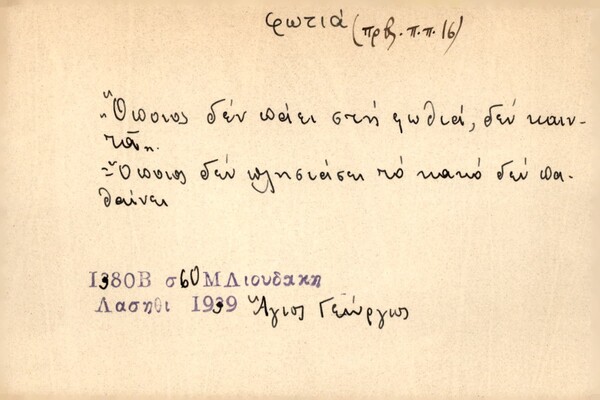 φωτιά (πρβ. π.π. 16)
"Ὅποιος δέν πάει στή φωθιά, δέν καιν-
τᾶ".
= Ὅποιος δέν πλησιάσει τό κακό δέν πα-
θαίνει
1380Β σ60 ΜΛιουδακη
Λασηθι 1939 Ἅγιος Γεώργιος